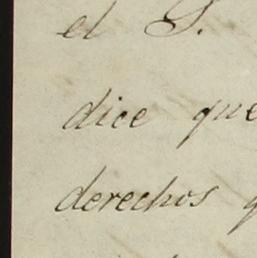 el S.
dice que
derechos q